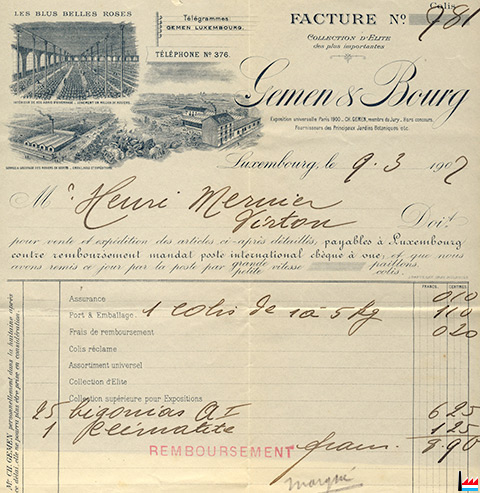 LES PLUS BELLES ROSES
Télégrammes:
GEMEN LUXEMBOURG.
TÉLÉPHONE Nº 376.
Colis
FACTURE Nº 981
COLLECTION D'ELITE
des plus importantes
Gemen & Bourg
Exposition universelle Paris 1900. CH. GEMEN, membre du Jury. Hors concours.
Fournisseurs des Principaux Jardins Botaniques etc.
Luxembourg, le 9.3 1907
Mr Henri Mernier
Virton
Doit
pour vente et expédition des articles ci-après détaillés, payables à Luxembourg
contre remboursement mandat poste international chèque à vue; et que nous
avons remis ce jour par la poste par grande vitesse paillons.
petite colis.
FRANCS. CENTIMES
Assurance 0 10
Port & Emballage. 1 colis de 1 à 5 Kg 1 10
Frais de remboursement 0 20
Colis réclame
Assortiment universel
Collection d'Elite
Collection supérieure pour Expositions
25 bigonias Q I 6 25
1 klématite 1 25
REMBOURSEMENT francs. 8.90
marqué
Mr. CH. GEMEN personnellement dans la huitaine après
ce délai, elle ne pourra plus être prise en considération.